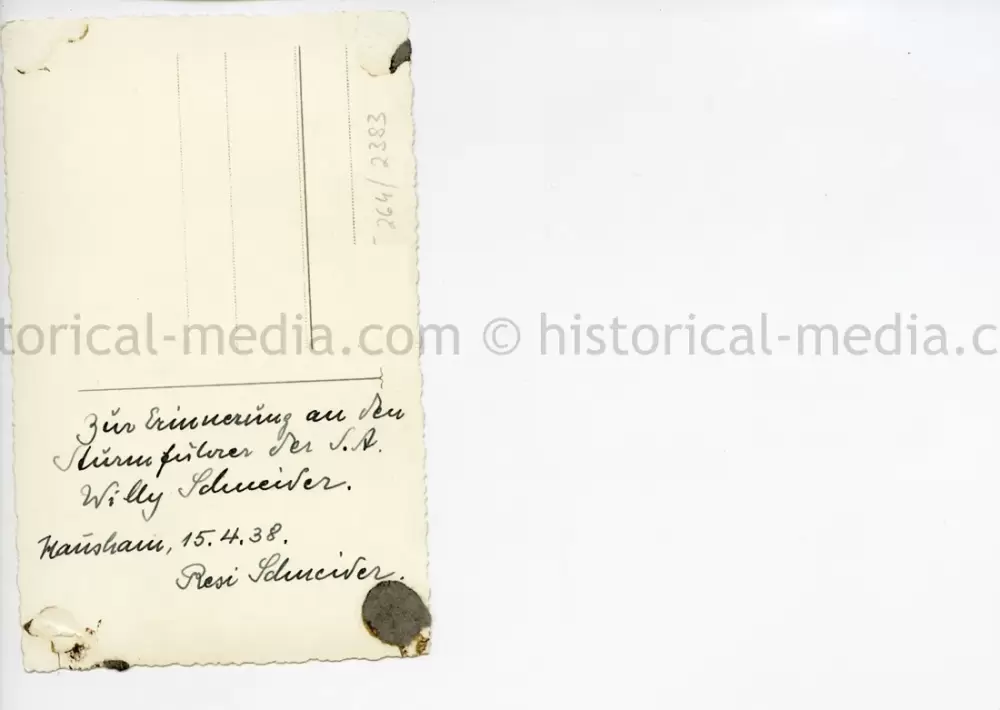 264/2383
torical-media.com © historical-media.c
Zur Erinnerung an den
Sturmführer der S.A.
Willy Schneider.
Hausham, 15.4.38.
Resi Schneider.